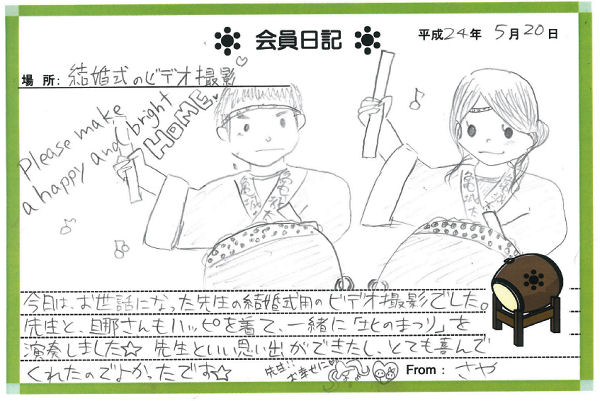 会員日記
平成24年 5月20日
場所: 結婚式のビデオ撮影
Please make
a happy and bright
HOME
亀城太
亀城太
今日は、お世話になった先生の結婚式用のビデオ撮影でした。
先生と、旦那さんもハッピを着て、一緒に「北のまつり」を
演奏しました☆ 先生といい思い出ができたし、とても喜んで
くれたのでよかったです☆
先生!!
お幸せに
From: さや